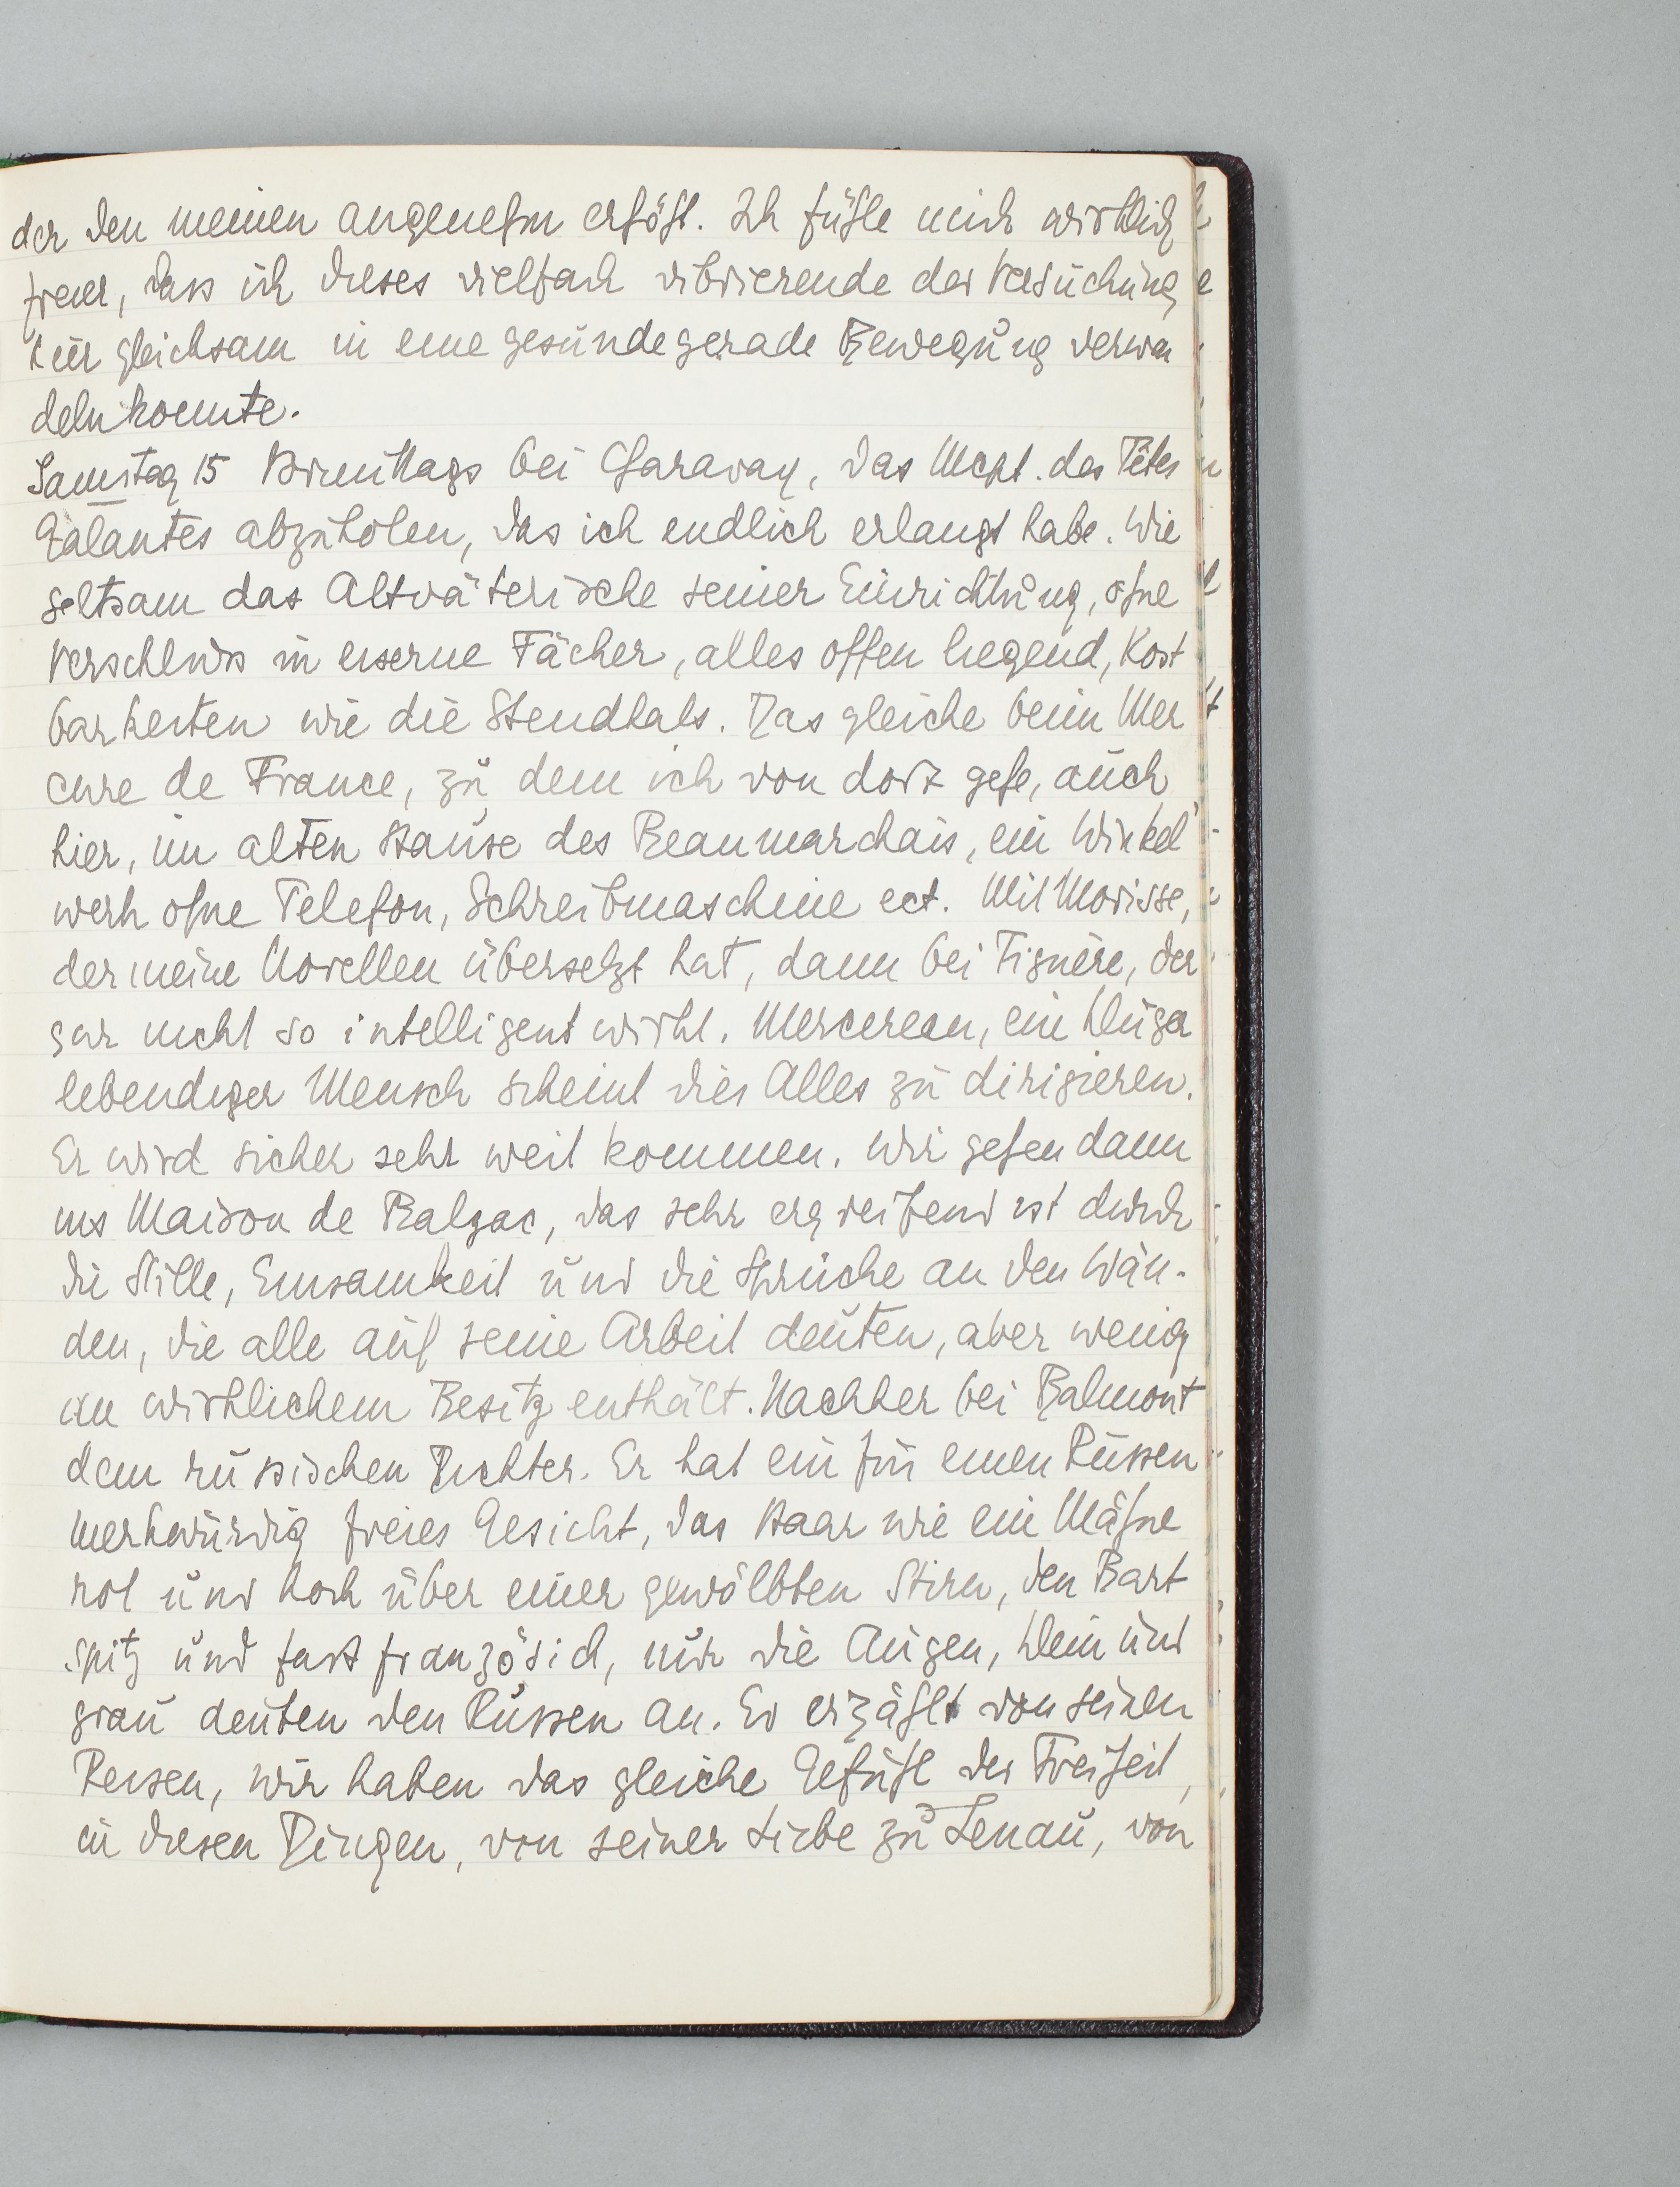 der den meinen angenehm erhöht. Ich fühle mich wirklich
freier, dass ich dieses vielfach vibrierende der Versuchung
hier gleichsam in eine gesunde gerade Bewegung verwan
deln konnte.
Samstag 15 Vormittags bei Charavay, das Mcpt. des Fêtes
Galantes abzuholen, das ich endlich erlangt habe. Wie
seltsam das Altväterische seiner Einrichtung, ohne
Verschluss in eiserne Fächer, alles offen liegend, Kost
barkeiten wie die Stendhals. Das gleiche beim Mer
cure de France, zu dem ich von dort gehe, auch
hier, im alten Hause des Beaumarchais, ein Winkel
werk ohne Telefon, Schreibmaschine ect. Mit Morisse,
der meine Novellen übersetzt hat, dann bei Figuière, der
gar nicht so intelligent wirkt. Mercereau, ein kluger
lebendiger Mensch scheint dies Alles zu dirigieren.
Er wird sicher sehr weit kommen. Wir gehen dann
ins Maison de Balzac, das sehr ergreifend ist durch
die Stille, Einsamkeit und die Sprüche an den Wän-
den, die alle auf seine Arbeit deuten, aber wenig
an wirklichem Besitz enthält. Nachher bei Balmont
dem russischen Dichter. Er hat ein für einen Russen
merkwürdig freies Gesicht, das Haar wie ein Mähne
rot und hoch über einer gewölbten Stirn, den Bart
spitz und fast französich, nur die Augen, klein und
grau deuten den Russen an. Er erzählt von seinen
Reisen, wir haben das gleiche Gefühl der Freiheit
in diesen Dingen, von seiner Liebe zu Lenau, von